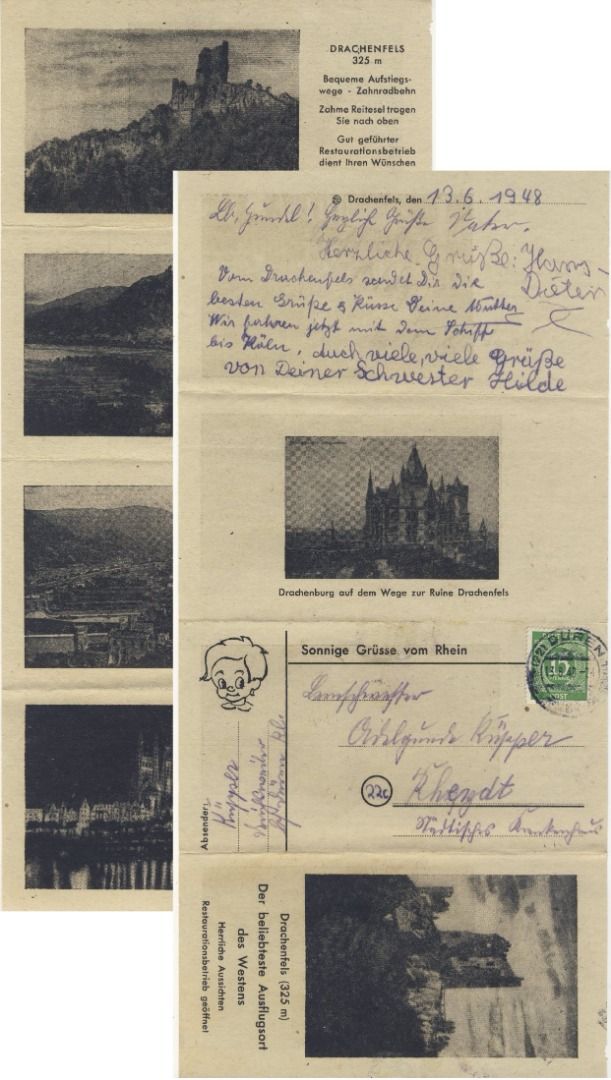 DRACHENFELS
325 m
Bequeme Aufstiegs-
wege - Zahnradbahn
Zahme Reitesel tragen
Sie nach oben
Gut geführter
Restaurationsbetrieb
dient Ihren Wünschen
Drachenfels, den 13.6.1948
Lb. Gundel! Herzliche Grüße Vater.
Herzliche Grüße: Hans-
Dieter
Vom Drachenfels sendet Dir die
besten Grüße & Küsse Deine Mutter
Wir fahren jetzt mit dem Schiff
bis Köln, auch viele, viele Grüße
von Deiner Schwester Hilde
Drachenburg auf dem Wege zur Ruine Drachenfels
Sonnige Grüsse vom Rhein
DÜREN
(22)
15
PFENNIG
POST
Lernschwester
Adelgunde Küpper
22c
Rheydt
Städtisches Krankenhaus
Absender:
Küpper
Drachenfels (325 m)
Der beliebteste Ausflugsort
des Westens
Herrliche Aussichten
Restaurationsbetrieb geöffnet